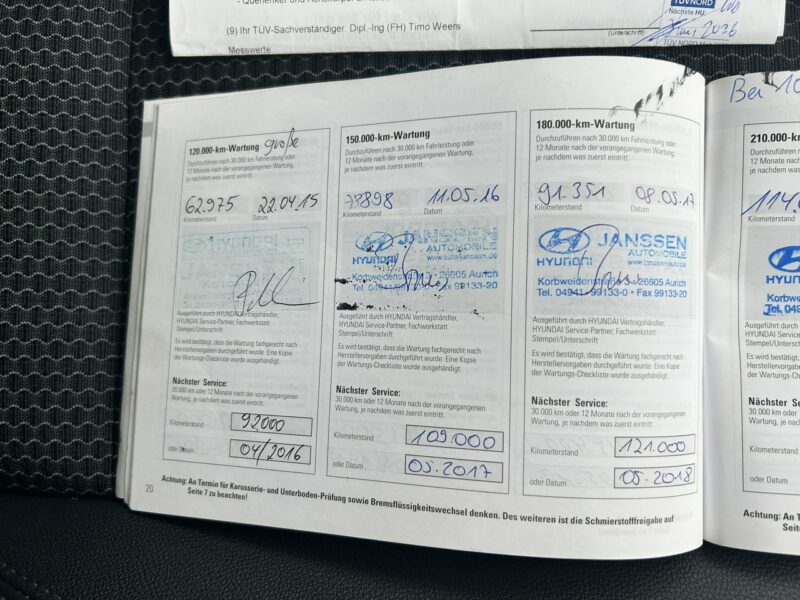 (9) Ihr TÜV-Sachverständiger Dipl.-Ing (FH) Timo Weers
Messwerte
(Unterschrift)
TÜV NORD
Nächste HU:
120.000-km-Wartung große
Durchzuführen nach 30.000 km Fahrleistung oder
12 Monate nach der vorangegangenen Wartung,
je nachdem was zuerst eintritt.
62.975 22.04.15
Kilometerstand Datum
Ausgeführt durch HYUNDAI Vertragshändler,
HYUNDAI Service-Partner, Fachwerkstatt
Stempel/Unterschrift
Es wird bestätigt, dass die Wartung fachgerecht nach
Herstellervorgaben durchgeführt wurde. Eine Kopie
der Wartungs-Checkliste wurde ausgehändigt.
Nächster Service:
30.000 km oder 12 Monate nach der vorangegangenen
Wartung, je nachdem was zuerst eintritt.
Kilometerstand 92000
oder Datum 04/2016
150.000-km-Wartung
Durchzuführen nach 30.000 km Fahrleistung oder
12 Monate nach der vorangegangenen Wartung,
je nachdem was zuerst eintritt.
11.05.16
Kilometerstand Datum
HYUNDAI
JANSSEN
AUTOMOBILE
Korbweidenstraße 3 · 26605 Aurich
Tel. 04941 99133-0 · Fax 99133-20
Ausgeführt durch HYUNDAI Vertragshändler,
HYUNDAI Service-Partner, Fachwerkstatt
Stempel/Unterschrift
Es wird bestätigt, dass die Wartung fachgerecht nach
Herstellervorgaben durchgeführt wurde. Eine Kopie
der Wartungs-Checkliste wurde ausgehändigt.
Nächster Service:
30.000 km oder 12 Monate nach der vorangegangenen
Wartung, je nachdem was zuerst eintritt.
Kilometerstand 109.000
oder Datum 05.2017
180.000-km-Wartung
Durchzuführen nach 30.000 km Fahrleistung oder
12 Monate nach der vorangegangenen Wartung,
je nachdem was zuerst eintritt.
91.351 08.05.17
Kilometerstand Datum
HYUNDAI
JANSSEN
AUTOMOBILE
Korbweidenstraße 3 · 26605 Aurich
Tel. 04941 - 99133-0 · Fax 99133-20
Ausgeführt durch HYUNDAI Vertragshändler,
HYUNDAI Service-Partner, Fachwerkstatt
Stempel/Unterschrift
Es wird bestätigt, dass die Wartung fachgerecht nach
Herstellervorgaben durchgeführt wurde. Eine Kopie
der Wartungs-Checkliste wurde ausgehändigt.
Nächster Service:
30.000 km oder 12 Monate nach der vorangegangenen
Wartung, je nachdem was zuerst eintritt.
Kilometerstand 121.000
oder Datum 05.2018
20
Achtung: An Termin für Karosserie- und Unterboden-Prüfung sowie Bremsflüssigkeitswechsel denken. Des weiteren ist die Schmierstofffreigabe auf
Seite 7 zu beachten!
Bei 10
210.000-km
Durchzuführen nach
12 Monate nach der v
je nachdem was zuer
Kilometerstand
HYU
Korbwe
Tel. 049
Ausgeführt durch HYU
HYUNDAI Service-Pa
Stempel/Unterschrift
Es wird bestätigt, dass
Herstellervorgaben
der Wartungs-Checkl
Nächster Se
30.000 km oder 12 M
Wartung, je nachdem
Kilometerstand
oder Datum
Achtung: An T
Seite